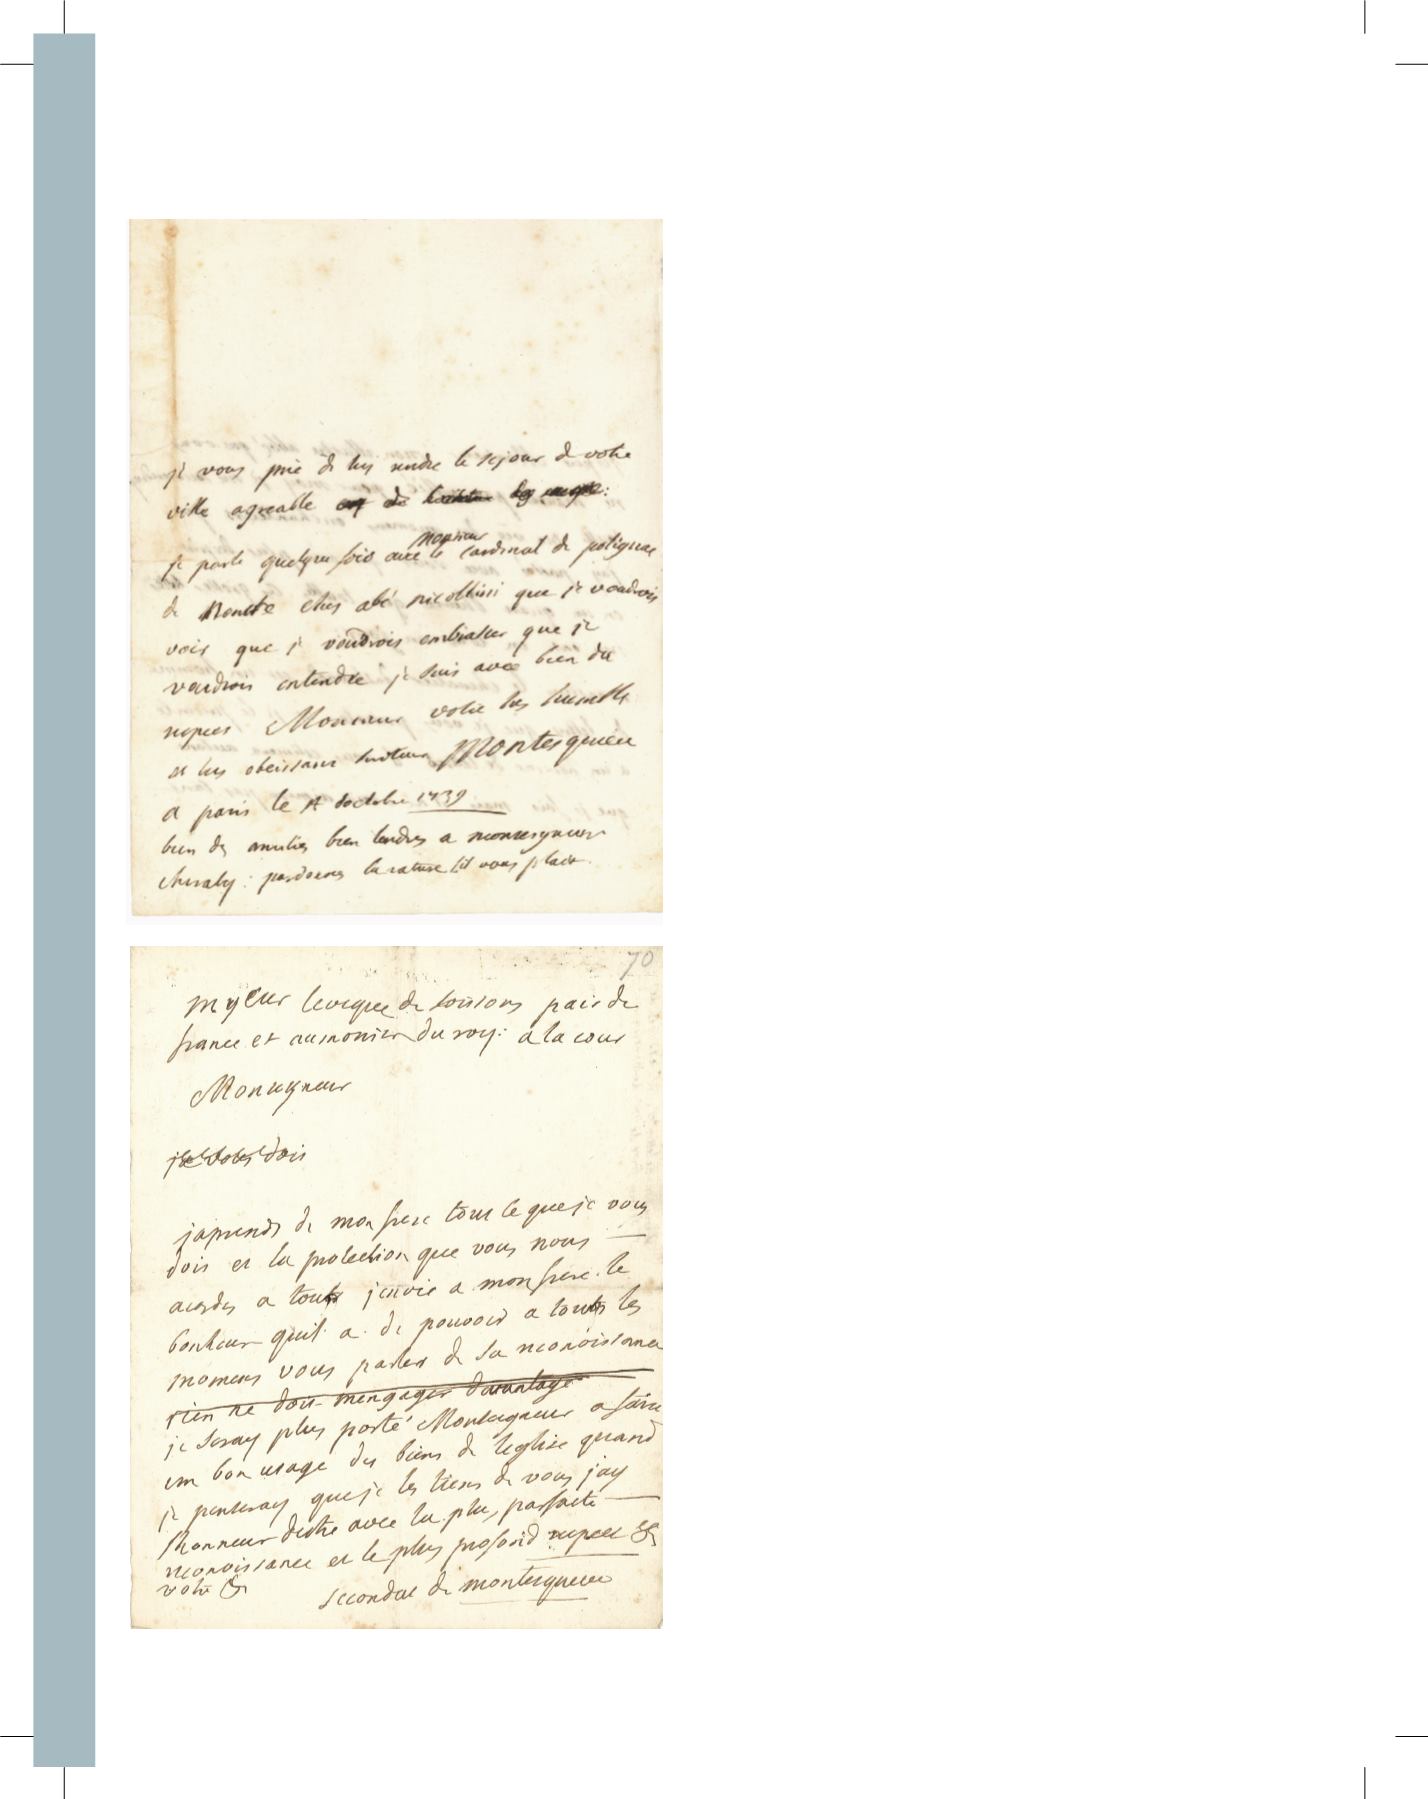 je vous prie de luy rendre le sejour de votre
ville agreable
monsieur
je parle quelque fois avec le cardinal de polignac
de cher abé nicollini que je voudrois
voir que je voudrois embrasser que je
voudrois entendre je suis avec bien du
respect Monsieur votre tres humble
et tres obeissant serviteur Montesquieu
a paris le doctobre 1739
bien des amitiés bien tendres a monseigneur
cheraty : pardonnes la rature sil vous plait
70
mgeur leveque de soissons pair de
france et aumonier du roy : a la cour
Monseigneur
je vous dois
japrends de mon frere tout ce que je vous
dois et la protection que vous nous
acordes a touts jenvie a mon frere le
bonheur quil a de pouvoir a touts les
momens vous parler de sa reconoissance
rien ne doit mengager davantage
je seray plus porté Monseigneur a faire
un bon usage des biens de leglise quand
je penseray que je les tiens de vous jay
lhonneur destre avec la plus parfaite
reconoissance et le plus profond respect &
votre &
secondat de montesquieu